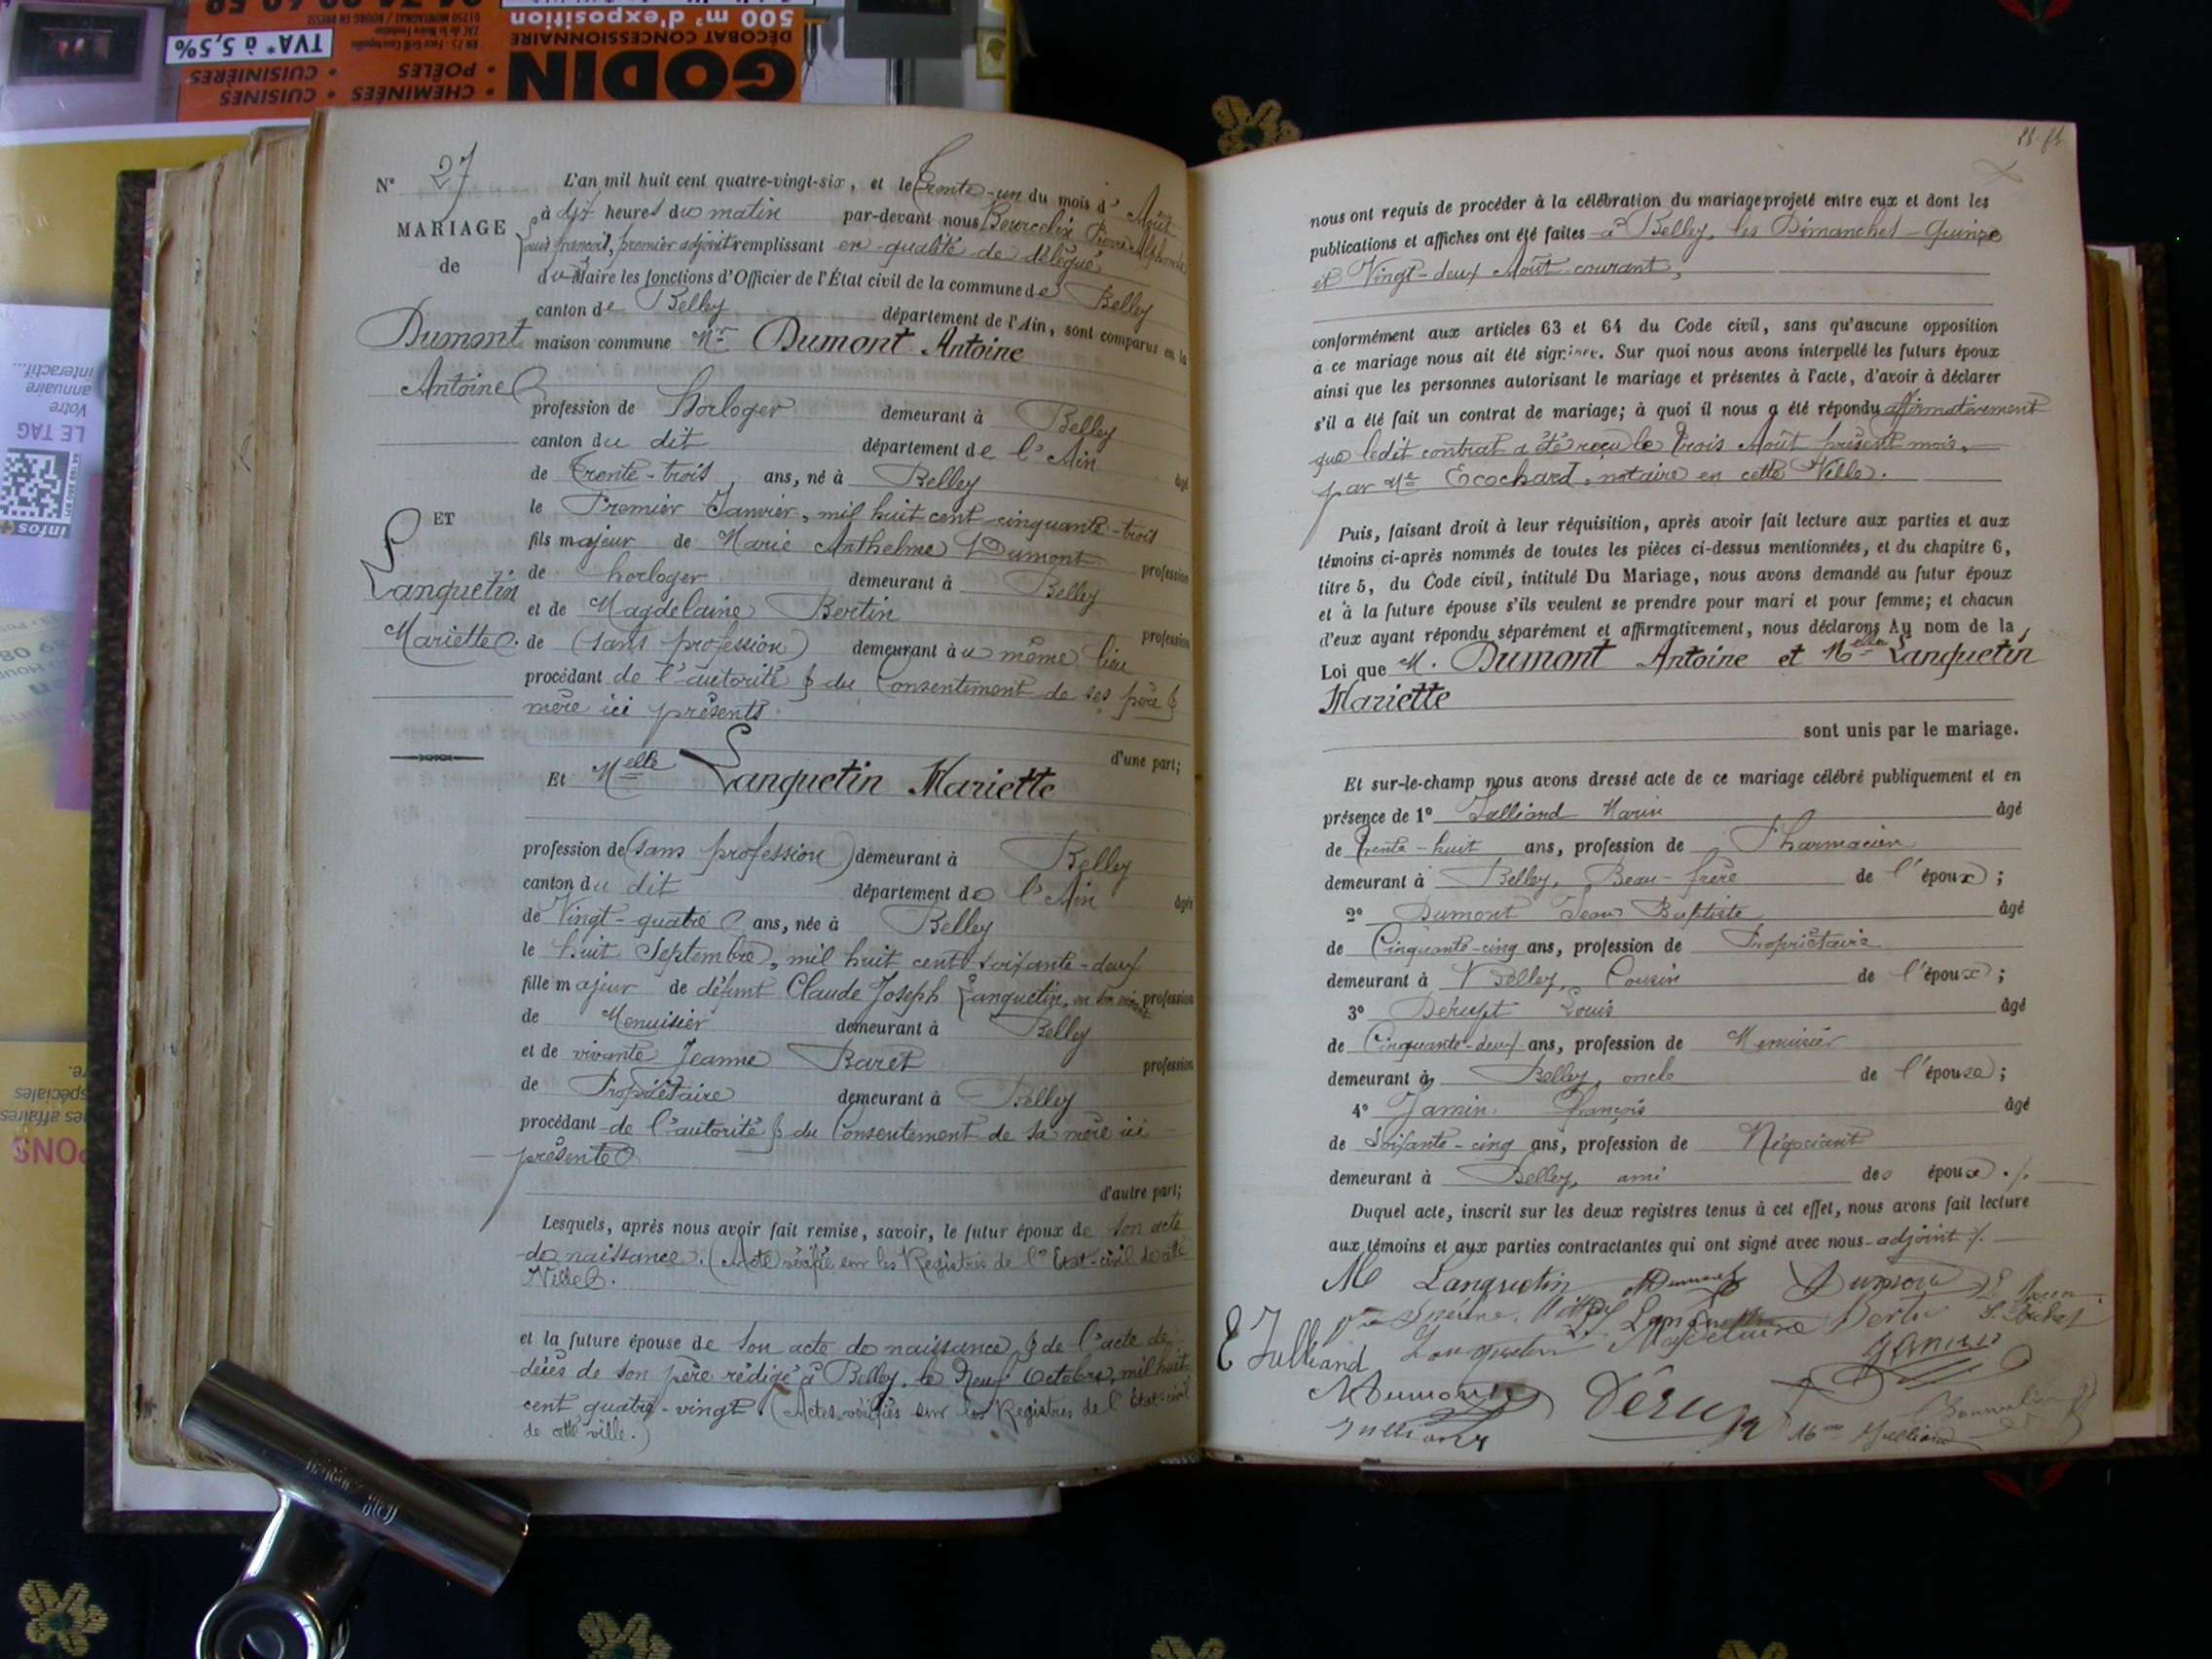 GODIN
DÉCOBAT CONCESSIONNAIRE
500 m² d'exposition
• CHEMINÉES • CUISINES
• POÊLES • CUISINIÈRES
TVA* à 5,5%
LE TAG
Votre
annuaire
interactif...
infos
N° 27
MARIAGE
de
Dumont
Antoine
ET
Lanquetin
Mariette
L'an mil huit cent quatre-vingt-six, et le trente-un du mois d'Août
à dix heures du matin par-devant nous Bourcelin Pierre Alphonse
Louis françois, premier adjoint remplissant en qualité de délégué
du Maire les fonctions d'Officier de l'État civil de la commune de Belley
canton de Belley département de l'Ain, sont comparus en la
maison commune Mr Dumont Antoine
profession de horloger demeurant à Belley
canton du dit département de l'Ain âgé
de Trente-trois ans, né à Belley
le Premier Janvier, mil huit cent cinquante-trois
fils majeur de Marie Anthelme Dumont profession
de horloger demeurant à Belley
et de Magdelaine Bertin profession
de (sans profession) demeurant au même lieu
procédant de l'autorité & du Consentement de ses père &
mère ici présents.
d'une part;
Et Melle Lanquetin Mariette
profession de (sans profession) demeurant à Belley
canton du dit département de l'Ain âgée
de Vingt-quatre ans, née à Belley
le huit Septembre, mil huit cent soixante-deux
fille majeur de défunt Claude Joseph Lanquetin, en son vivant profession
de Menuisier demeurant à Belley
et de vivante Jeanne Baret profession
de Propriétaire demeurant à Belley
procédant de l'autorité & du Consentement de sa mère ici
présente
d'autre part;
Lesquels, après nous avoir fait remise, savoir, le futur époux de son acte
de naissance. (Acte vérifié sur les Registres de l'Etat-civil de cette
Ville).
et la future épouse de son acte de naissance & de l'acte de
décès de son père rédigé à Belley, le Neuf Octobre, mil huit
cent quatre-vingt. (Actes vérifiés sur les Registres de l'Etat-civil
de cette ville.)
nous ont requis de procéder à la célébration du mariage projeté entre eux et dont les
publications et affiches ont été faites à Belley, les Dimanches Quinze
et Vingt-deux Août courant,
conformément aux articles 63 et 64 du Code civil, sans qu'aucune opposition
à ce mariage nous ait été signifiée. Sur quoi nous avons interpellé les futurs époux
ainsi que les personnes autorisant le mariage et présentes à l'acte, d'avoir à déclarer
s'il a été fait un contrat de mariage; à quoi il nous a été répondu affirmativement
que ledit contrat a été reçu le trois Août présent mois,
par Me Ecochard, notaire en cette Ville.
Puis, faisant droit à leur réquisition, après avoir fait lecture aux parties et aux
témoins ci-après nommés de toutes les pièces ci-dessus mentionnées, et du chapitre 6,
titre 5, du Code civil, intitulé Du Mariage, nous avons demandé au futur époux
et à la future épouse s'ils veulent se prendre pour mari et pour femme; et chacun
d'eux ayant répondu séparément et affirmativement, nous déclarons Au nom de la
Loi que M. Dumont Antoine et Melle Lanquetin
Mariette
sont unis par le mariage.
Et sur-le-champ nous avons dressé acte de ce mariage célébré publiquement et en
présence de 1° Julliand Marin âgé
de trente-huit ans, profession de Pharmacien
demeurant à Belley, Beau-frère de l'époux;
2° Dumont Jean Baptiste âgé
de Cinquante-cinq ans, profession de Propriétaire
demeurant à Belley, Cousin de l'époux;
3° Dérupt Louis âgé
de Cinquante-deux ans, profession de Menuisier
demeurant à Belley, oncle de l'épouse;
4° Jamin françois âgé
de Soixante-cinq ans, profession de Négociant
demeurant à Belley, ami des époux./.
Duquel acte, inscrit sur les deux registres tenus à cet effet, nous avons fait lecture
aux témoins et aux parties contractantes qui ont signé avec nous adjoint./.
M Lanquetin Dumont Dumont
Lanquetin Magdelaine Bertin
E Julliand Lanquetin Jamin
Dumont Dérupt
Julliand Mme Julliand